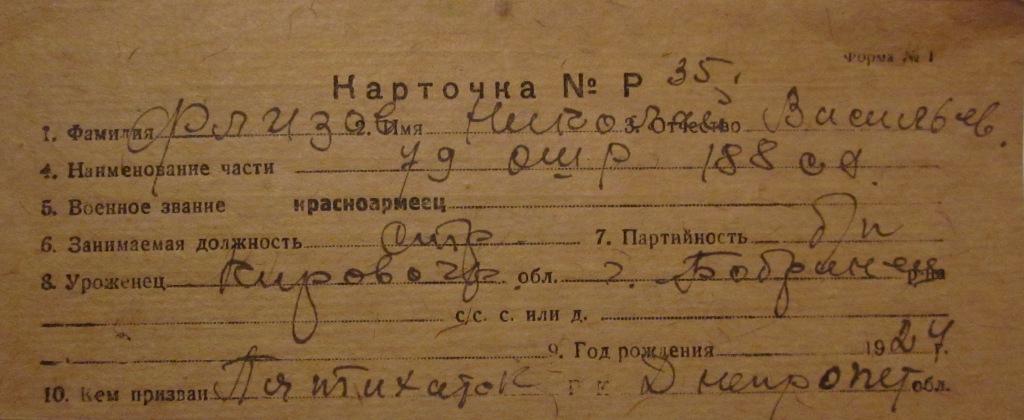 Форма № 1
Карточка № Р 35.
1. Фамилия Флизов 2. Имя Николай 3. Отчество Васильев.
4. Наименование части 79 ошр 188 сд
5. Военное звание красноармеец
6. Занимаемая должность стр 7. Партийность б/п
8. Уроженец Кировогр. обл. г. Бобринец р-на
с/с. с. или д.
9. Год рождения 1924 г.
10. Кем призван Пятихатск Г К Днепропет обл.